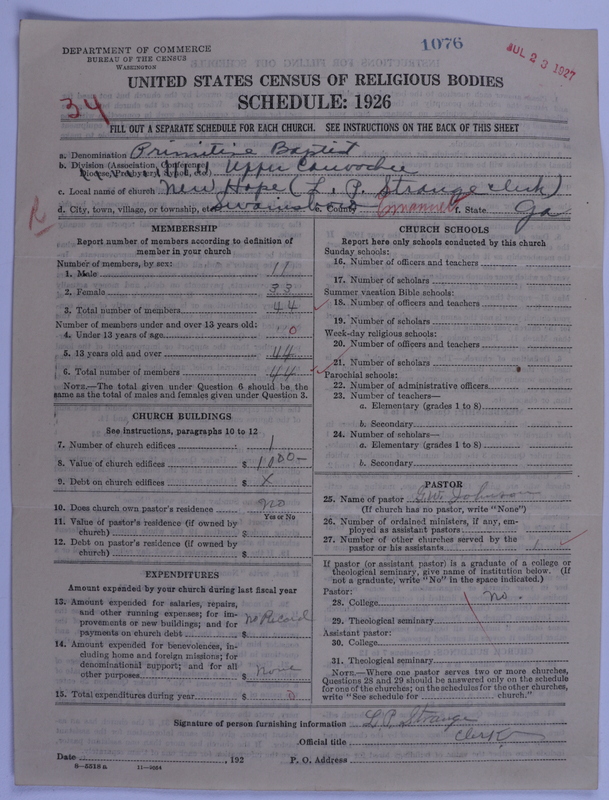 DEPARTMENT OF COMMERCE
BUREAU OF THE CENSUS
WASHINGTON
1076
JUL 23 1927
UNITED STATES CENSUS OF RELIGIOUS BODIES
SCHEDULE: 1926
34
FILL OUT A SEPARATE SCHEDULE FOR EACH CHURCH. SEE INSTRUCTIONS ON THE BACK OF THIS SHEET
a. Denomination Primitive Baptist
b. Division (Association, Conference, Upper Canoochee
Diocese, Presbytery, Synod, etc.)
c. Local name of church New Hope (L. P. Strange clerk)
d. City, town, village, or township, etc. Swainsboro e. County Emanuel f. State Ga
R
MEMBERSHIP
Report number of members according to definition of
member in your church
Number of members, by sex:
1. Male 11
2. Female 33
3. Total number of members 44
Number of members under and over 13 years old:
4. Under 13 years of age 0
5. 13 years old and over 44
6. Total number of members 44
NOTE.—The total given under Question 6 should be the
same as the total of males and females given under Question 3.
CHURCH BUILDINGS
See instructions, paragraphs 10 to 12
7. Number of church edifices 1
8. Value of church edifices $ 1000—
9. Debt on church edifices $ X
10. Does church own pastor's residence no
Yes or No
11. Value of pastor's residence (if owned by
church) $
12. Debt on pastor's residence (if owned by
church) $
EXPENDITURES
Amount expended by your church during last fiscal year
13. Amount expended for salaries, repairs,
and other running expenses; for im-
provements or new buildings; and for
payments on church debt $ no Record
14. Amount expended for benevolences, in-
cluding home and foreign missions; for
denominational support; and for all
other purposes $ None
15. Total expenditures during year $ 0
CHURCH SCHOOLS
Report here only schools conducted by this church
Sunday schools:
16. Number of officers and teachers
17. Number of scholars
Summer vacation Bible schools:
18. Number of officers and teachers
19. Number of scholars
Week-day religious schools:
20. Number of officers and teachers
21. Number of scholars
Parochial schools:
22. Number of administrative officers
23. Number of teachers—
a. Elementary (grades 1 to 8)
b. Secondary
24. Number of scholars—
a. Elementary (grades 1 to 8)
b. Secondary
PASTOR
25. Name of pastor G. W. Johnson
(If church has no pastor, write "None")
26. Number of ordained ministers, if any, em-
ployed as assistant pastors
27. Number of other churches served by the
pastor or his assistants 1
If pastor (or assistant pastor) is a graduate of a college or
theological seminary, give name of institution below. (If
not a graduate, write "No" in the space indicated.)
Pastor:
28. College no.
29. Theological seminary
Assistant pastor:
30. College
31. Theological seminary
NOTE.—Where one pastor serves two or more churches,
Questions 28 and 29 should be answered only on the schedule
for one of the churches; on the schedules for the other churches,
write "See schedule for church."
Signature of person furnishing information L. P. Strange
Official title Clerk
Date , 192 P. O. Address
8—5318a 11—9664